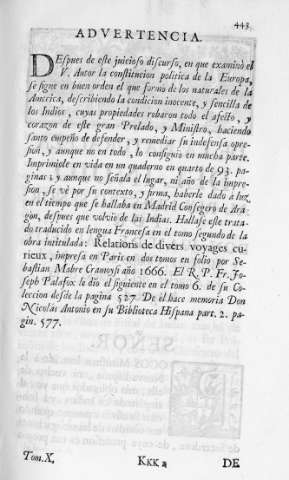 443
ADVERTENCIA.
DEspues de este juicioso discurso, en que examinó el
V. Autor la constitucion politica de la Europa,
se sigue en buen orden el que formó de los naturales de la
America, describiendo la condicion inocente, y sencilla de
los Indios, cuyas propiedades robaron todo el afecto, y
corazon de este gran Prelado, y Ministro, haciendo
santo empeño de defender, y remediar su indefensa opre-
sion, y aunque no en todo, lo consiguió en mucha parte.
Imprimiòle en vida en un quaderno en quarto de 93. pa-
ginas; y aunque no señala el lugar, ni año de la impre-
sion, se vé por su contexto, y pruua, haberle dado à luz
en el tiempo que se hallaba en Madrid Consegero de Ara-
gòn, despues que volviò de las Indias. Hallase este trata-
do traducido en lengua Francesa en el tomo segundo de la
obra intitulada: Relations de divers voyages cu-
rieux, impresa en Paris en dos tomos en folio por Se-
bastian Mabre Cramoysi año 1666. El R. P. Fr. Jo-
seph Palafox le diò el siguiente en el tomo 6. de su Co-
leccion desde la pagina 527. De él hace memoria Don
Nicolás Antonio en su Biblioteca Hispana part. 2. pa-
gin. 577.
Tom. X. Kkk 2 DE